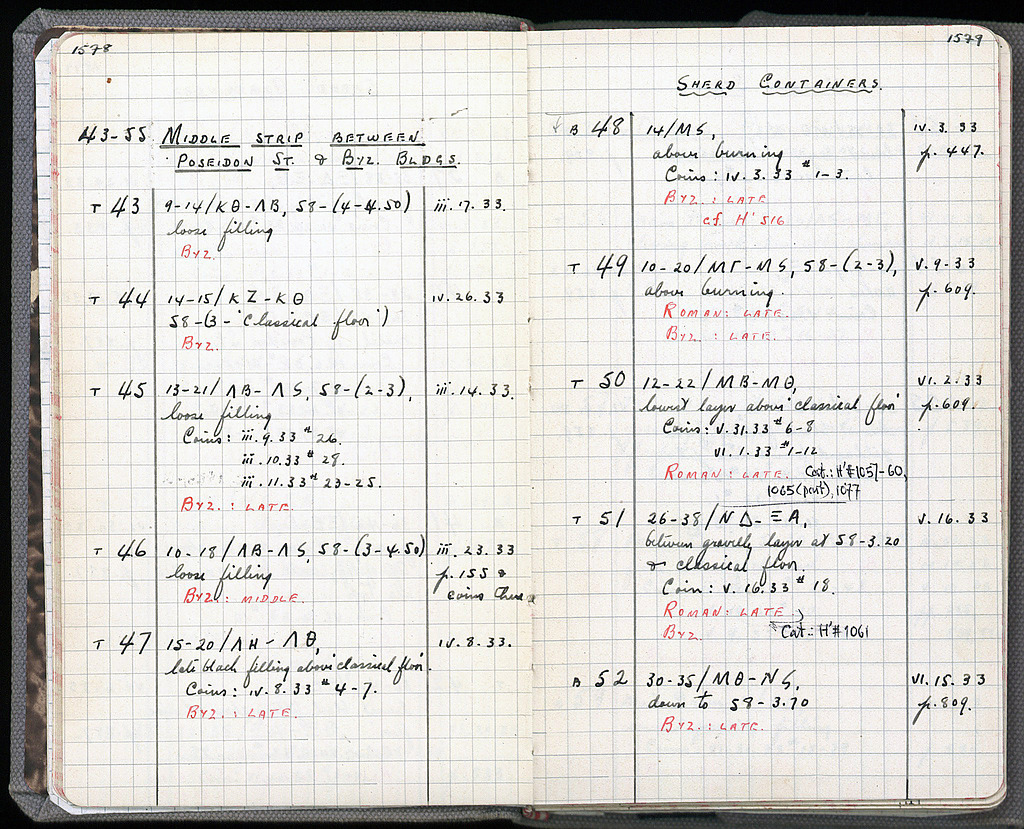 1578
43-55 MIDDLE STRIP BETWEEN
POSEIDON ST. & BYZ. BLDGS.
T 43 9-14/ΚΘ-ΛΒ, 58-(4-4.50) iii.17.33.
loose filling
BYZ.
T 44 14-15/ΚΖ-ΚΘ iv.26.33
58-(3-'Classical floor')
BYZ.
T 45 13-21/ΛΒ-ΛS, 58-(2-3), iii.14.33.
loose filling
Coins: iii.9.33 # 26.
iii.10.33 # 28.
iii.11.33 # 23-25.
BYZ.: LATE.
T 46 10-18/ΛΒ-ΛS, 58-(3-4.50) iii.23.33
loose filling p.155 &
BYZ.: MIDDLE. coins there
T 47 15-20/ΛΗ-ΛΘ, iv.8.33.
late black filling above 'classical floor'.
Coins: iv.8.33 # 4-7.
BYZ.: LATE.
1579
SHERD CONTAINERS.
B 48 14/ΜS, iv.3.33
above burning p.447.
Coins: iv.3.33 # 1-3.
BYZ.: LATE
cf. H' 516
T 49 10-20/ΜΓ-ΜS, 58-(2-3), v.9-33
above burning. p.609.
ROMAN: LATE.
BYZ.: LATE.
T 50 12-22/ΜΒ-ΜΘ, vi.2.33
lowest layer above 'classical floor' p.609.
Coins: v.31.33 # 6-8
vi.1.33 # 1-12
ROMAN: LATE. Cat.: H'#1057-60,
1065 (part), 1077
T 51 26-38/ΝΔ-ΞΑ, v.16.33
between gravelly layer at 58-3.20
& classical floor.
Coin: v.16.33 # 18.
ROMAN: LATE.
BYZ. Cat.: H'#1061
B 52 30-35/ΜΘ-ΝS, vi.15.33
down to 58-3.70 p.809.
BYZ.: LATE.